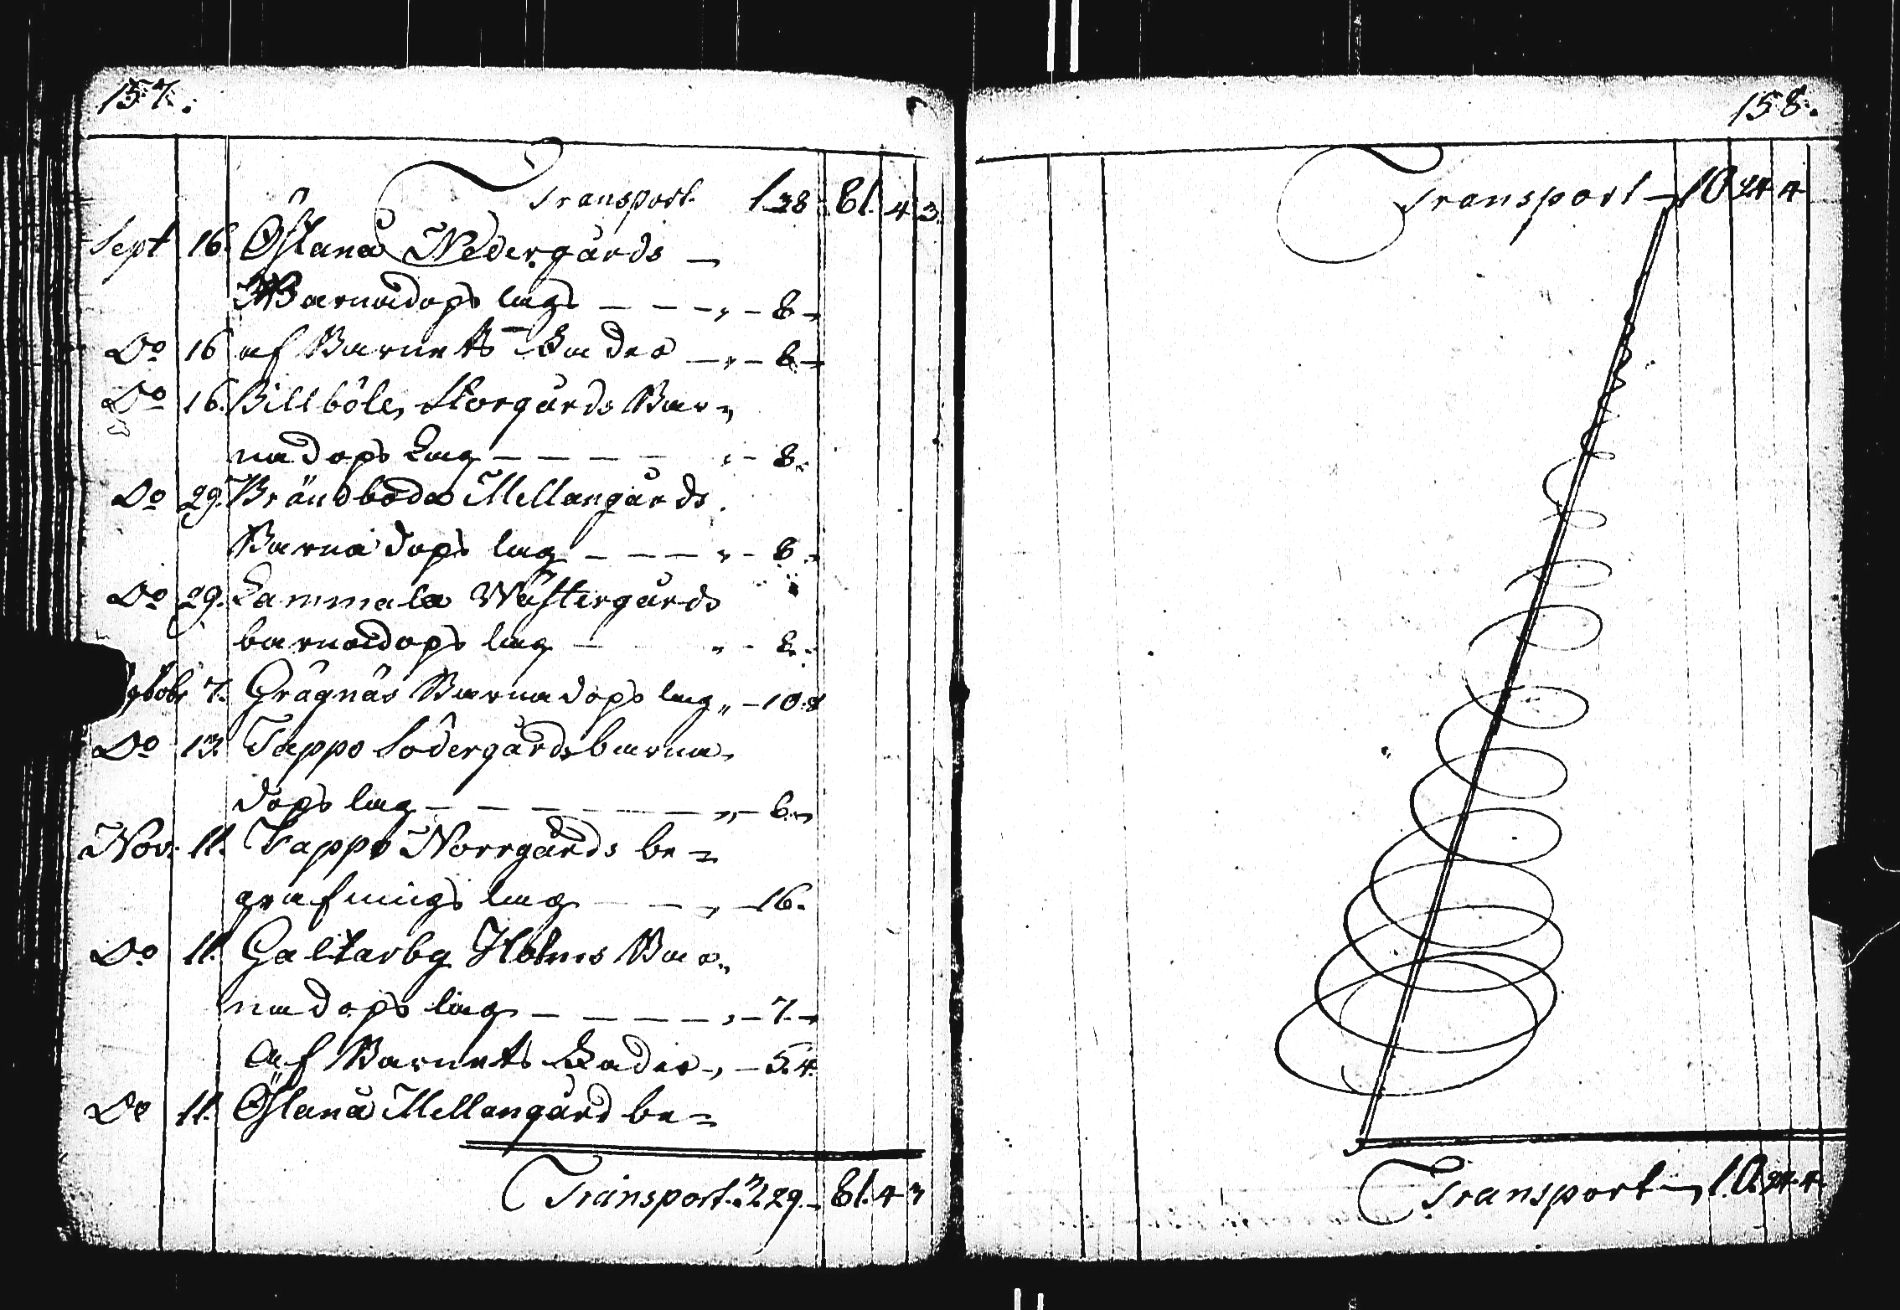 157.
Transport 1.28 : 81. 4 3.
Sept 16. Östanå Nedergårds —
Barnadops lags — — — „ — 8 —
Do 16 af Barnets Fader — „ — 6 —
Do 16. Billböle Storgårds Bar„
nadops Lag — — — — „ — 8.
Do 29. Brändboda Mellangårds
Barnadops lag — — — „ — 8 —
Do 29. Lammala Wästergårds
barnadops lag — „ — 8.
Octobr 7. Grågnäs Barnadops lag „ — 10:8
Do 13. Tappo Södergårds barna„
dops lag — — — — — „ — 6. —
Nov: 11. Tappo Norrgårds be=
grafnings lag — — „ — 16.
Do 11. Galtarby Holms Bar„
nadops lag — — — — „ — 7. —
Af Barnets Fader „ — 5.4.
Do 11. Östanå Mellangård be=
Transport 229. — 81. 4 3
158.
Transport — 10 24 4
Transport — 10. 24. 4.